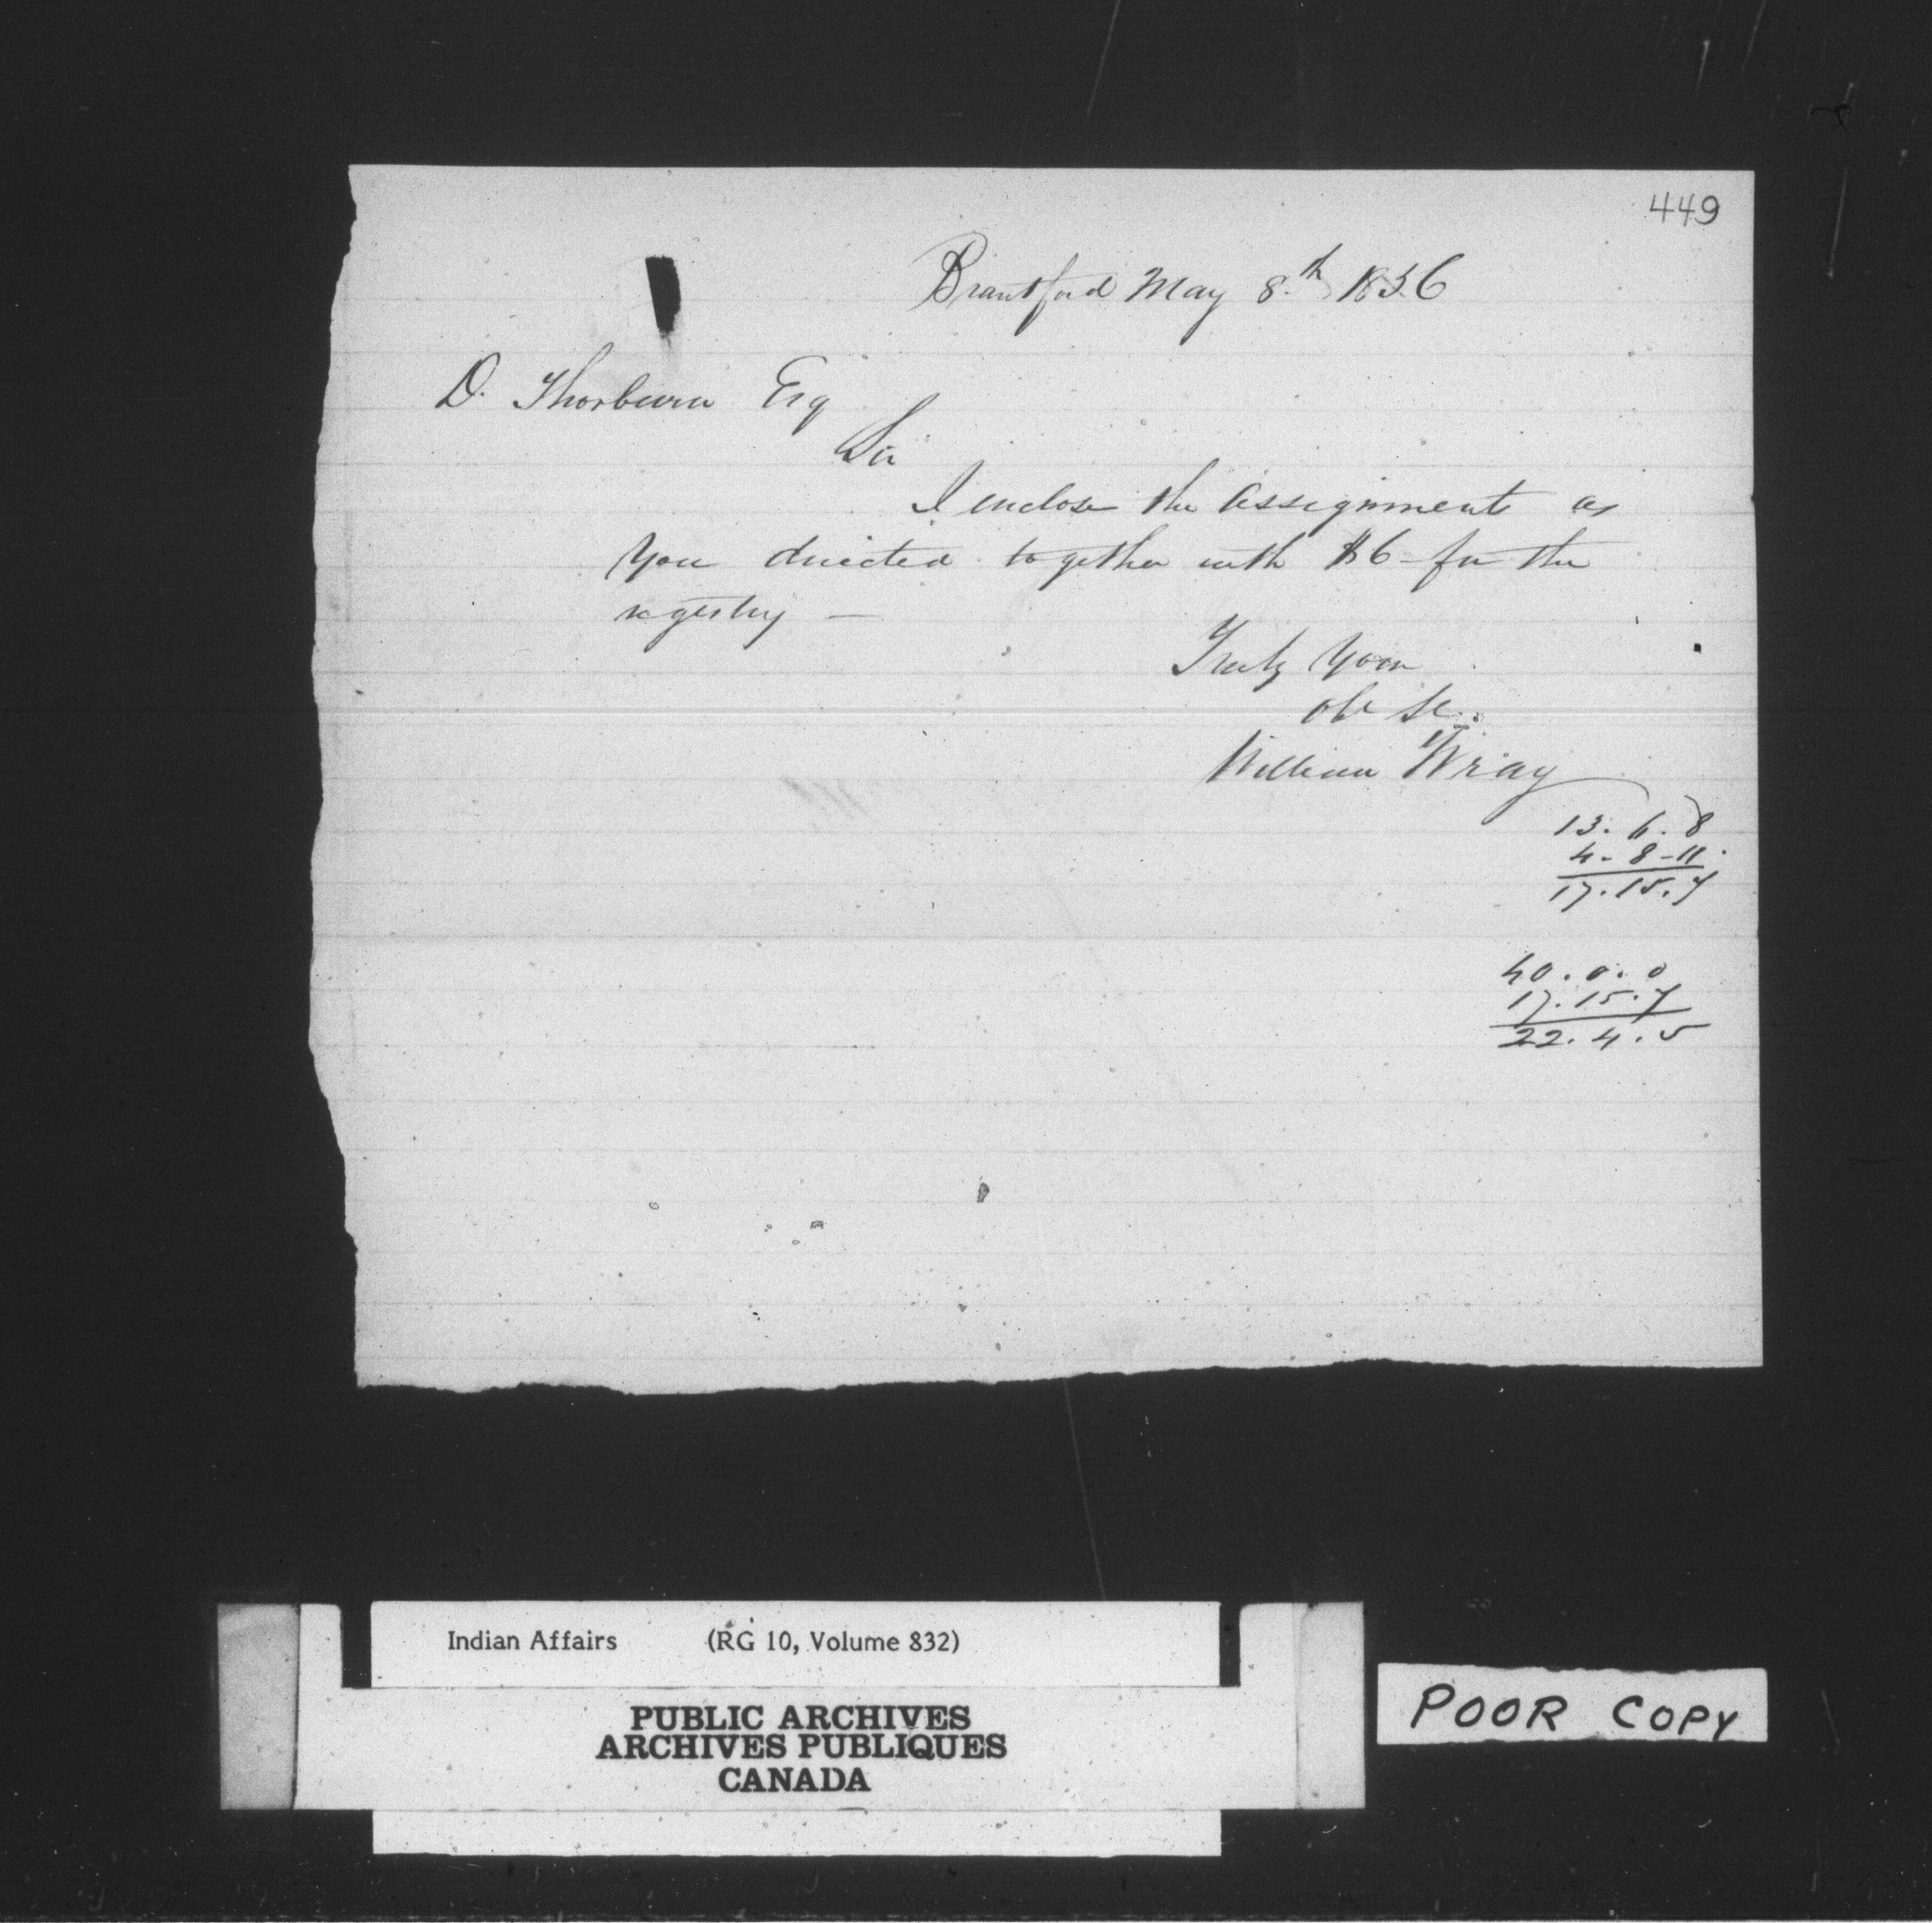 449
Brantford May 8th 1856
D. Thorburn Esq
Sir
I enclose the assignments as
you directed together with $6 - for the
registry —
Truly Your
obt St.
William Wray
13. 6. 8
4 - 8 - 11.
17. 15. 7
40. 0. 0
17. 15. 7
22. 4. 5
Indian Affairs (RG 10, Volume 832)
PUBLIC ARCHIVES
ARCHIVES PUBLIQUES
CANADA
POOR COPY